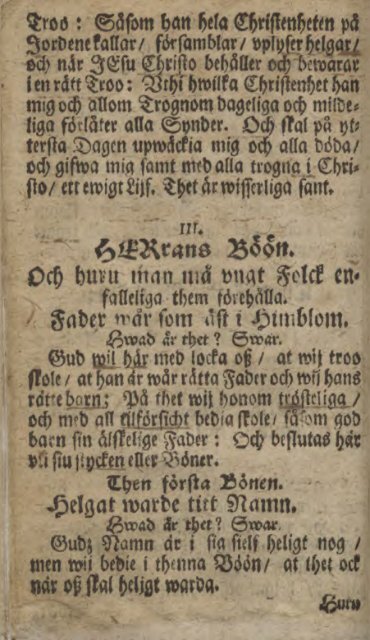 Troo: Såsom han hela Christenheten på
Jordene kallar/ församblar/ vplyser helgar/
och när JEsu Christo behåller och bewarar
i en rätt Troo: Vthi hwilka Christenhet han
mig och allom Trognom dageliga och milde-
liga förlåter alla Synder. Och skal på yt-
tersta Dagen upwäckia mig och alla döda/
och gifwa mig samt med alla trogna i Chri-
sto/ ett ewigt Lijf. Thet är wisserliga sant.
III.
HERrans Böön.
Och huru man må vngt Folck en-
falleliga them förehålla.
Fader wår som äst i Himblom.
Hwad är thet? Swar.
Gud wil här med locka oß/ at wij troo
skole/ at han är wår rätta Fader och wij hans
rätte barn; På thet wij honom trösteliga/
och med all tilförsicht bedia skole/ såsom god
barn sin älskelige Fader: Och beslutas här
vti siu stycken eller Böner.
Then första Bönen.
Helgat warde titt Namn.
Hwad är thet? Swar.
Gudz Namn är i sig sielf heligt nog/
men wij bedie i thenna Böön/ at thet ock
när oß skal heligt warda.
Huru